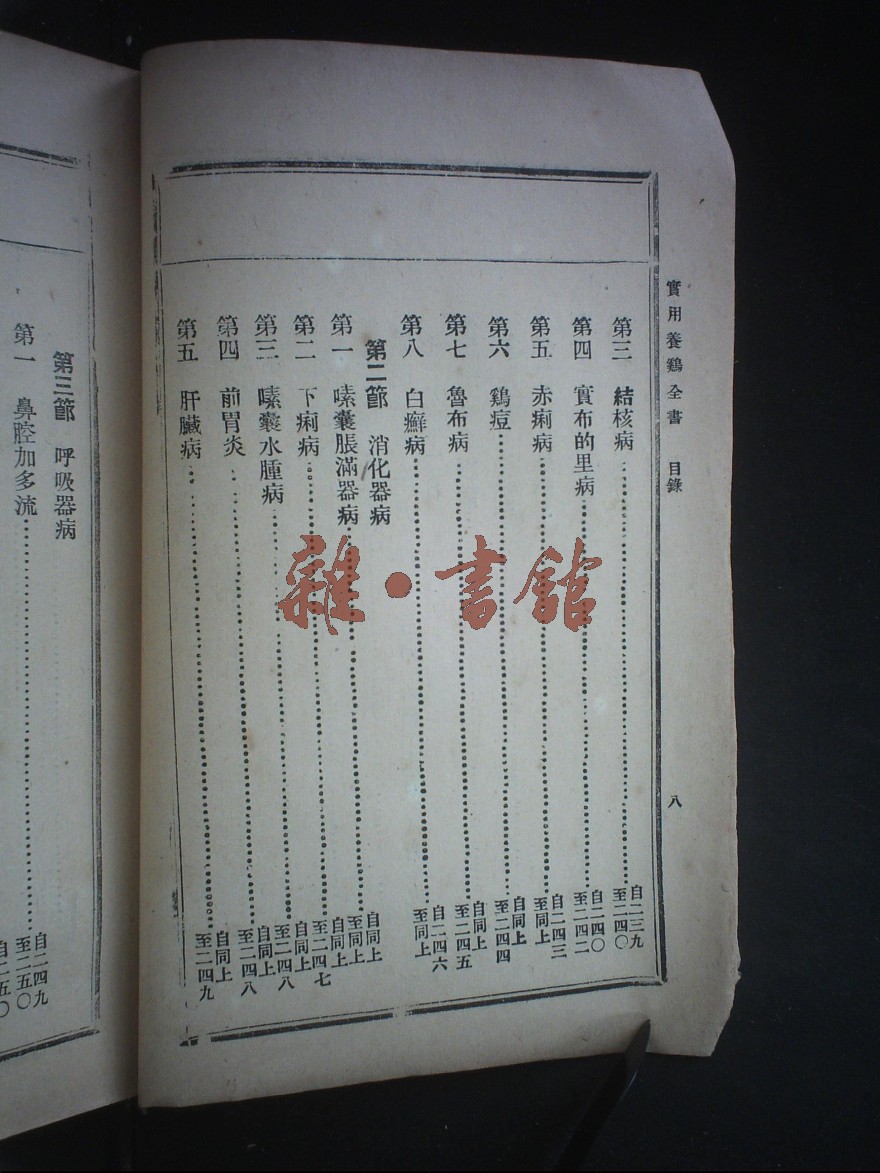 實用養鷄全書 目錄 八
第三 結核病 自二三九至二四〇
第四 實布的里病 自二四〇至二四二
第五 赤痢病 自二四三至同上
第六 鷄痘 自同上至二四四
第七 魯布病 自同上至二四五
第八 白癬病 自二四六至同上
第二節 消化器病
第一 嗉囊脹滿器病 自同上至同上
第二 下痢病 自同上至二四七
第三 嗉囊水腫病 自同上至二四八
第四 前胃炎 自同上至二四八
第五 肝臟病 自同上至二四九
第三節 呼吸器病
第一 鼻腔加多流 自二四九至二五〇
自二五〇
雜·書館